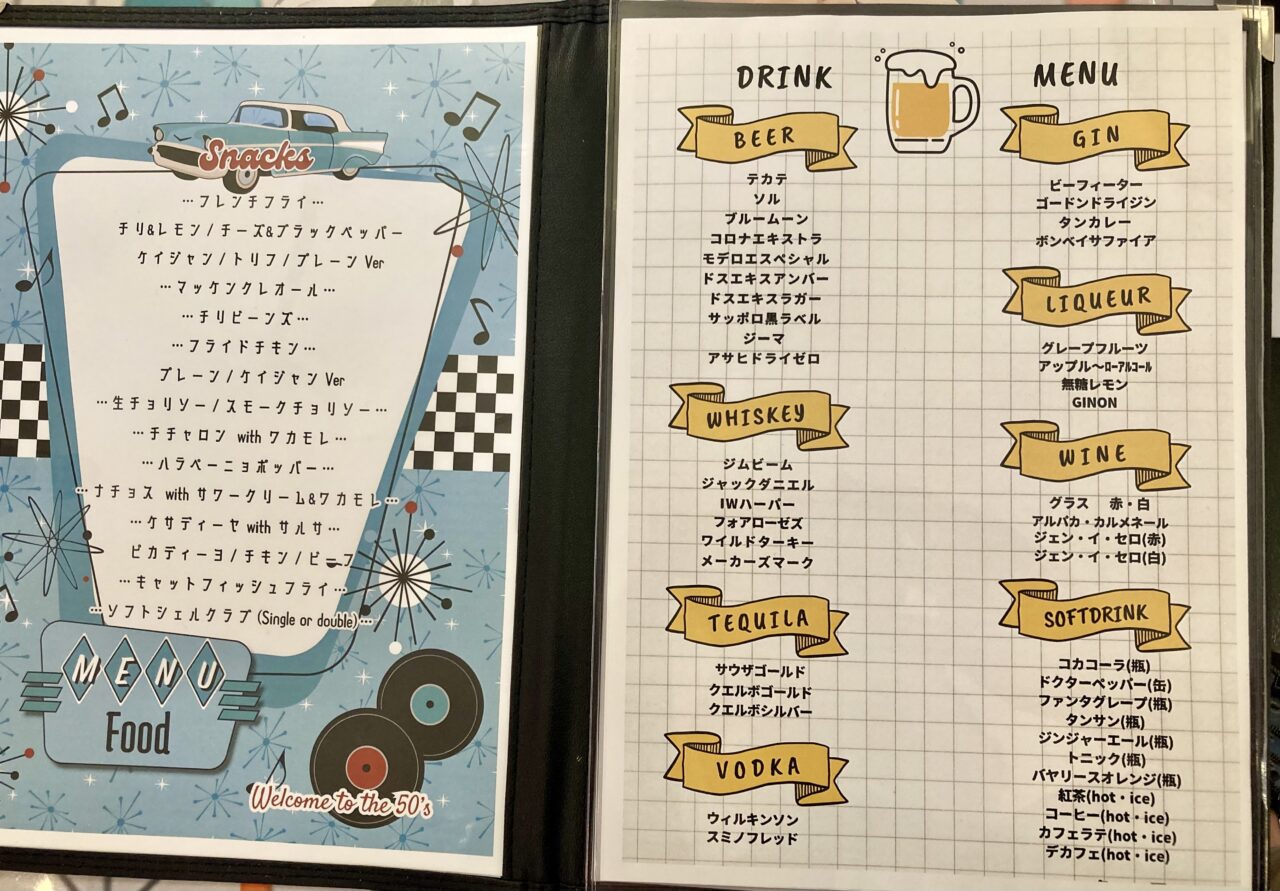 Snacks
…フレンチフライ…
チリ&レモン/チーズ&ブラックペッパー
ケイジャン/トリフ/プレーン Ver
…マッケンクレオール…
…チリビーンズ…
…フライドチキン…
プレーン/ケイジャン Ver
…生チョリソー/スモークチョリソー…
…チチャロン with ワカモレ…
…ハラペーニョポッパー…
…ナチョス with サワークリーム&ワカモレ…
…ケサディーヤ with サルサ…
ピカディーヨ/チキン/ビーフ
…キャットフィッシュフライ…
…ソフトシェルクラブ (Single or double)…
MENU
Food
Welcome to the 50's
DRINK MENU
BEER
テカテ
ソル
ブルームーン
コロナエキストラ
モデロエスペシャル
ドスエキスアンバー
ドスエキスラガー
サッポロ黒ラベル
ジーマ
アサヒドライゼロ
WHISKEY
ジムビーム
ジャックダニエル
IWハーパー
フォアローゼズ
ワイルドターキー
メーカーズマーク
TEQUILA
サウザゴールド
クエルボゴールド
クエルボシルバー
VODKA
ウィルキンソン
スミノフレッド
GIN
ビーフィーター
ゴードンドライジン
タンカレー
ボンベイサファイア
LIQUEUR
グレープフルーツ
アップル～ﾛｰｱﾙｺｰﾙ
無糖レモン
GINON
WINE
グラス 赤・白
アルパカ・カルメネール
ジェン・イ・セロ(赤)
ジェン・イ・セロ(白)
SOFTDRINK
コカコーラ(瓶)
ドクターペッパー(缶)
ファンタグレープ(瓶)
タンサン(瓶)
ジンジャーエール(瓶)
トニック(瓶)
バヤリースオレンジ(瓶)
紅茶(hot・ice)
コーヒー(hot・ice)
カフェラテ(hot・ice)
デカフェ(hot・ice)